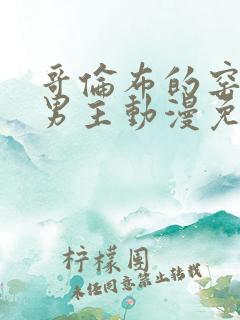 哥倫布的窑
男主動漫免
柠檬围
未经同意禁止转载